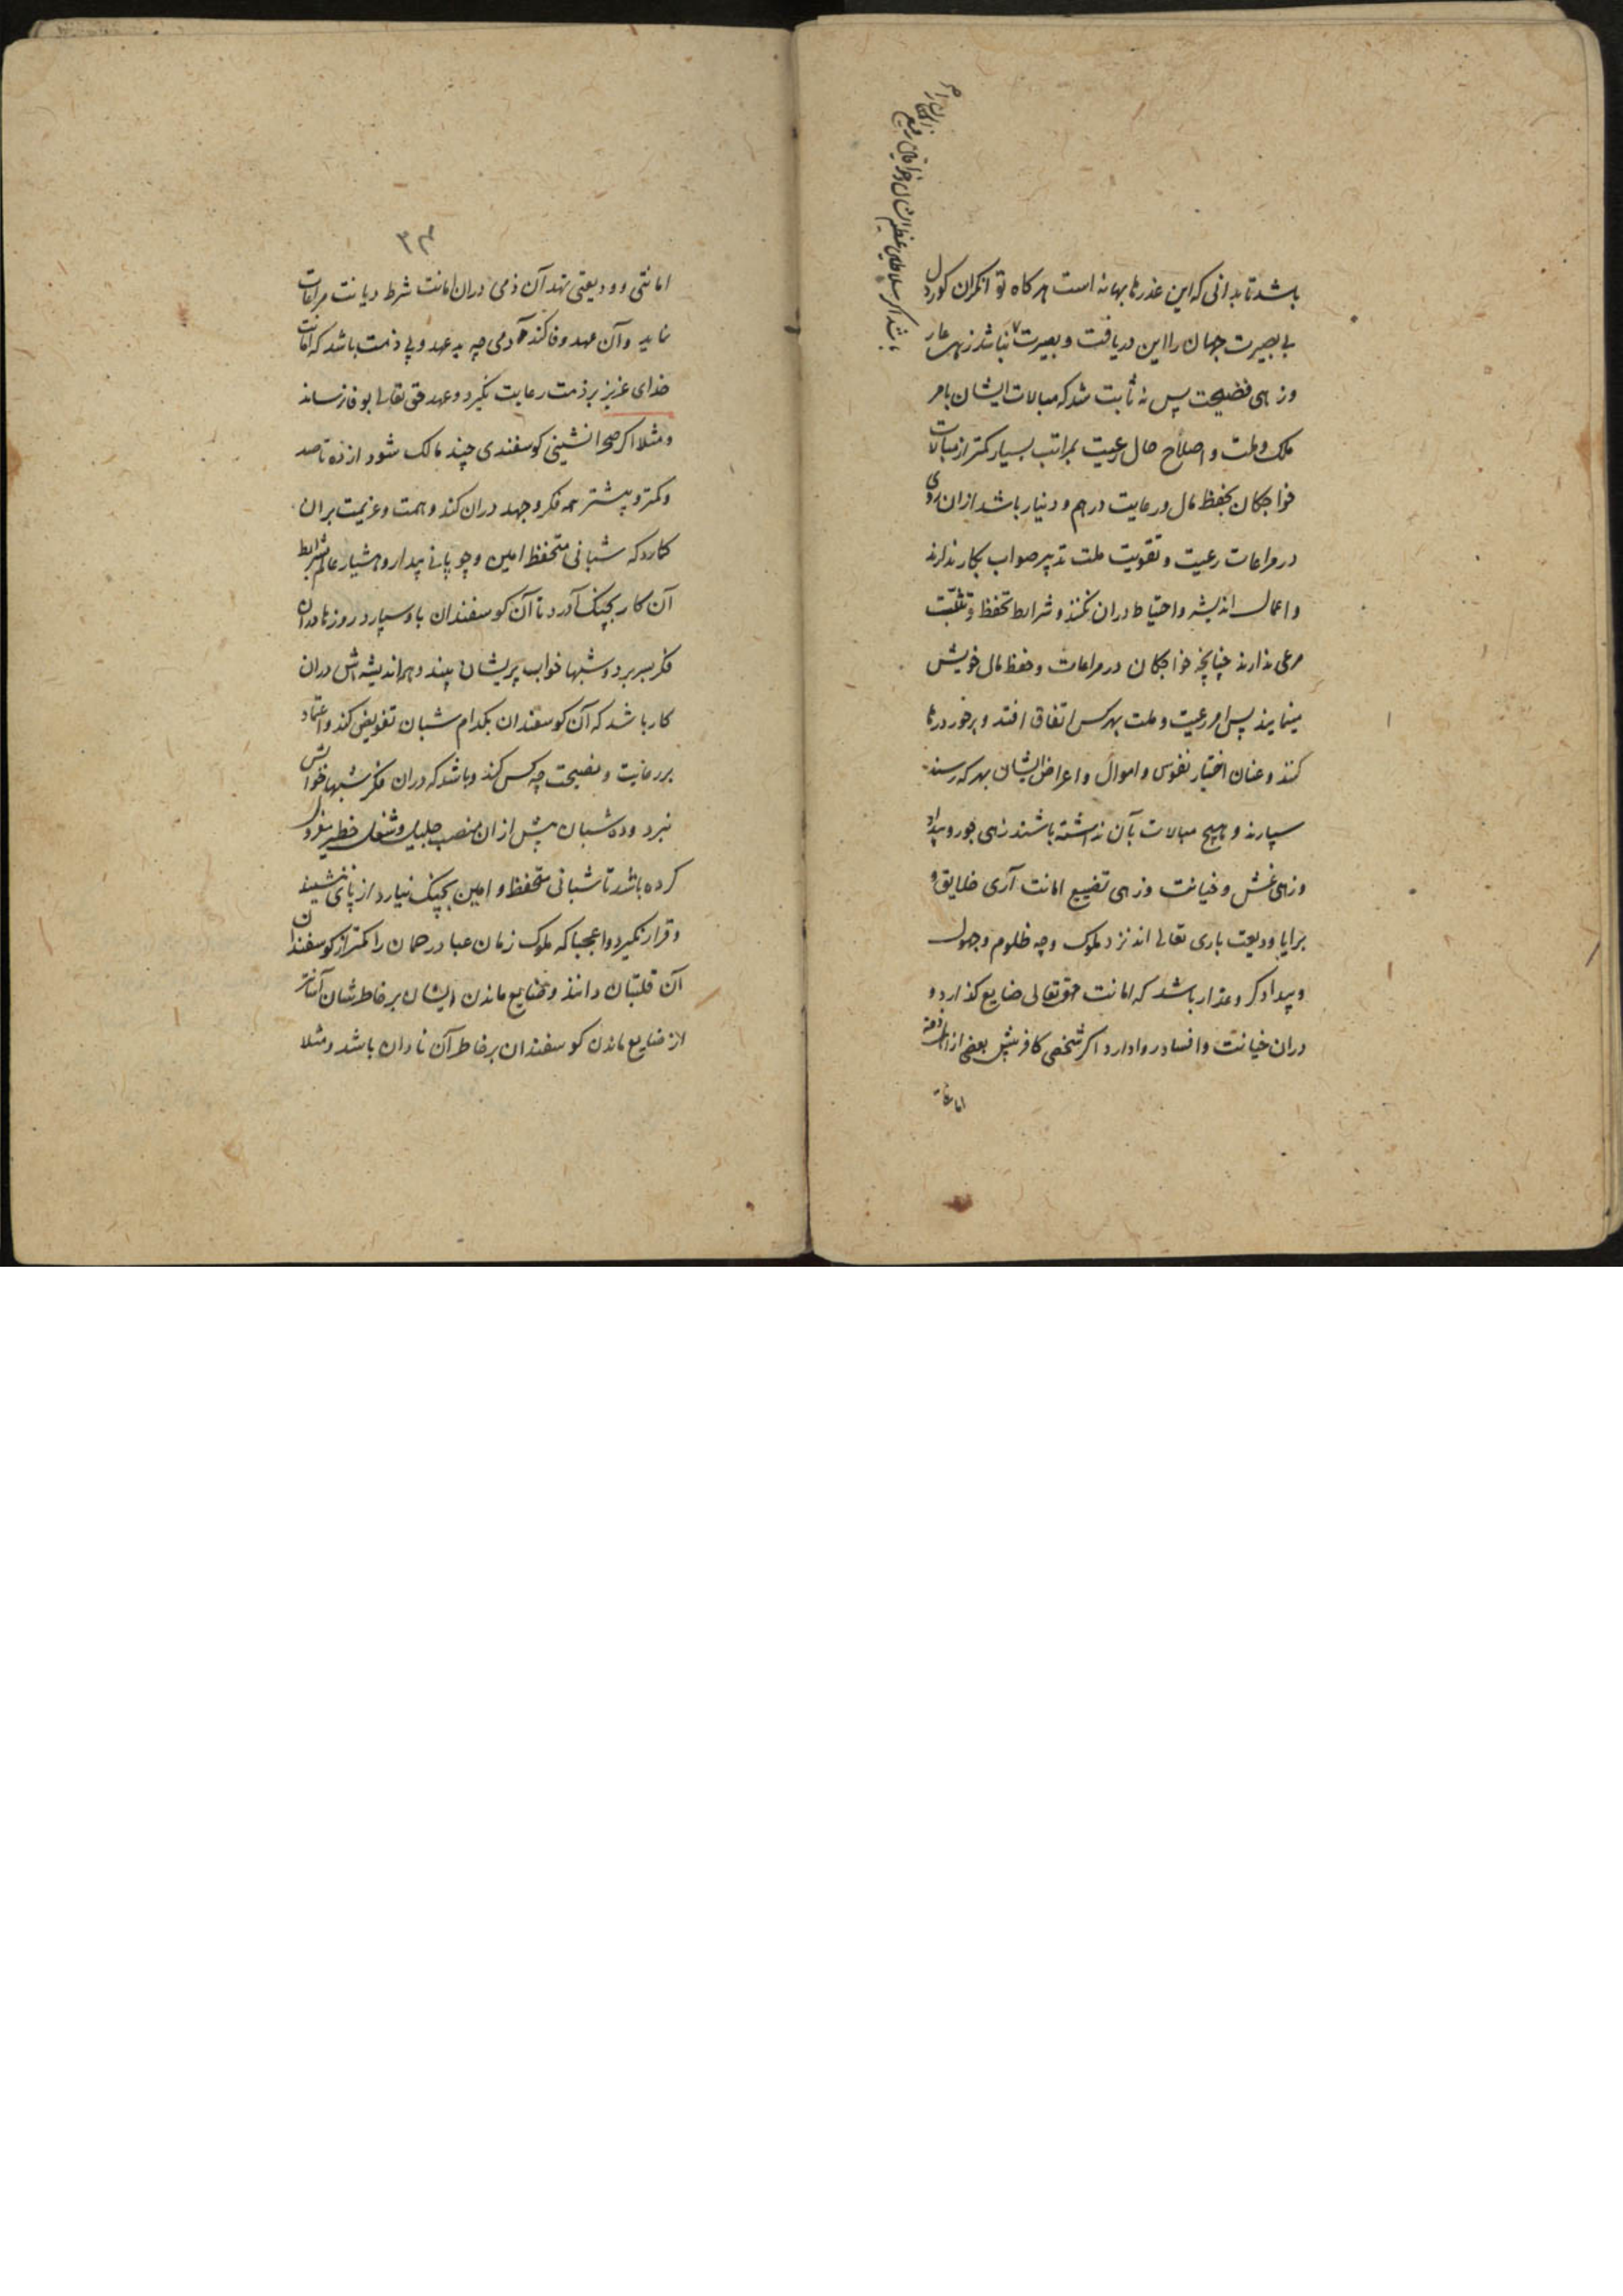 باشد تا بدانی که این عذرها بهانه است هرگاه توانگران کوردل
بی بصیرت جهان را این دریافت و بصیرت باشد زهی عار
وزهی فضیحت پس نه ثابت شد که مبالات ایشان بامر
ملک و ملت و اصلاح حال رعیت بمراتب بسیار کمتر از مبالات
خواجکان بحفظ مال و رعایت درهم و دینار باشد ازان روی
در مراعات رعیت و تقویت ملت تدبیر صواب بکار ندارند
و اعمال اندیشه و احتیاط دران نکنند و شرایط تحفظ و تثبت
مرعی ندارند چنانچه خواجکان در مراعات و حفظ مال خویش
مینمایند پس امر رعیت و ملت بهر کس اتفاق افتد و برخورد رها
کنند و عنان اختیار نفوس و اموال و اعراض ایشان بهر که رسند
سپارند و هیچ مبالات بآن نداشته باشند زهی جور و بیداد
وزهی غش و خیانت وزهی تضییع امانت آری خلایق و
برایا ودیعت باری تعالی اند نزد ملوک وچه ظلوم و جهول
و بیدادکر و غدار باشد که امانت حقتعالی ضایع کذارد و
دران خیانت و افساد روا دارد اکر شخصی کافر پیش بعضی از اهل ذمه
امانتی
باشد اکر سلاطین عظیم الشان و خواقین رفیع
۳۳
امانتی و ودیعتی نهد آن ذمی دران امانت شرط دیانت مراعات
نماید و آن عهد وفا کند آدمی چه بد عهد و بی ذمت باشد که امانت
خدای عزیز بر ذمت رعایت نکیرد و عهد حق تعالی بوفا نرساند
و مثلا اکر صحرانشینی کوسفندی چند مالک شود از ده تا صد
و کمتر و بیشتر همه فکر و جهد دران کند و همت و عزیمت بران
کمارد که شبانی متحفظ امین و چوپانی بیدار و هشیار عالم بشرایط
آن کار بچنک آورد تا آن کوسفندان باو سپارد روزها دران
فکر بسر برد و شبها خواب پریشان بیند و همه اندیشه اش دران
کار باشد که آن کوسفندان بکدام شبان تفویض کند و اعتماد
بر رعایت و نصیحت چه کس کند و باشد که دران فکر شبها خوابش
نبرد و ده شبان پیش ازان منصب جلیل و شغل خطیر معزول
کرده باشد تا شبانی متحفظ و امین بچنک نیارد از پای ننشیند
و قرار نکیرد واعجبا که ملوک زمان عباد رحمان را کمتر از کوسفندان
آن قلتبان دانند و ضایع ماندن ایشان بر خاطرشان آسانتر
از ضایع ماندن کوسفندان بر خاطر آن نادان باشد و مثلا